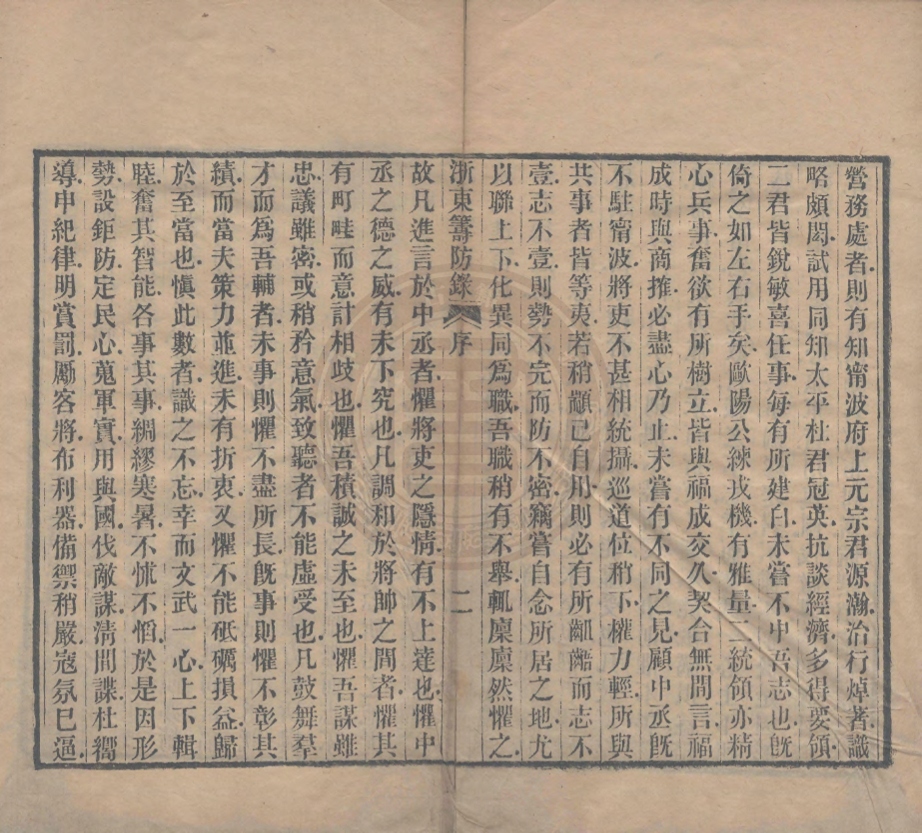 營務處者則有知甯波府上元宗君源瀚治行焯著識
略頗閎試用同知太平杜君冠英抗談經濟多得要領
二君皆銳敏喜任事每有所建白未嘗不中吾志也既
倚之如左右手矣歐陽公練戎機有雅量二統領亦精
心兵事奮欲有所樹立皆與福成交久契合無閒言福
成時與商搉必盡心乃止未嘗有不同之見顧中丞既
不駐甯波將吏不甚相統攝巡道位稍下權力輕所與
共事者皆等夷若稍顓己自用則必有所齟齬而志不
壹志不壹則勢不完而防不密竊嘗自念所居之地尤
以聯上下化異同為職吾職稍有不舉輒廩廩然懼之
浙東籌防錄 序 二
故凡進言於中丞者懼將吏之隱情有不上達也懼中
丞之德之威有未下究也凡調和於將帥之閒者懼其
有町畦而意計相歧也懼吾積誠之未至也懼吾謀雖
忠議雖密或稍矜意氣致聽者不能虛受也凡鼓舞羣
才而為吾輔者未事則懼不盡所長既事則懼不彰其
績而當夫策力並進未有折衷又懼不能砥礪損益歸
於至當也慎此數者識之不忘幸而文武一心上下輯
睦奮其智能各事其事綢繆寒暑不怵不慆於是因形
勢設鉅防定民心蒐軍實用與國伐敵謀清閒諜杜嚮
導申紀律明賞罰勵客將布利器備禦稍嚴寇氛已逼